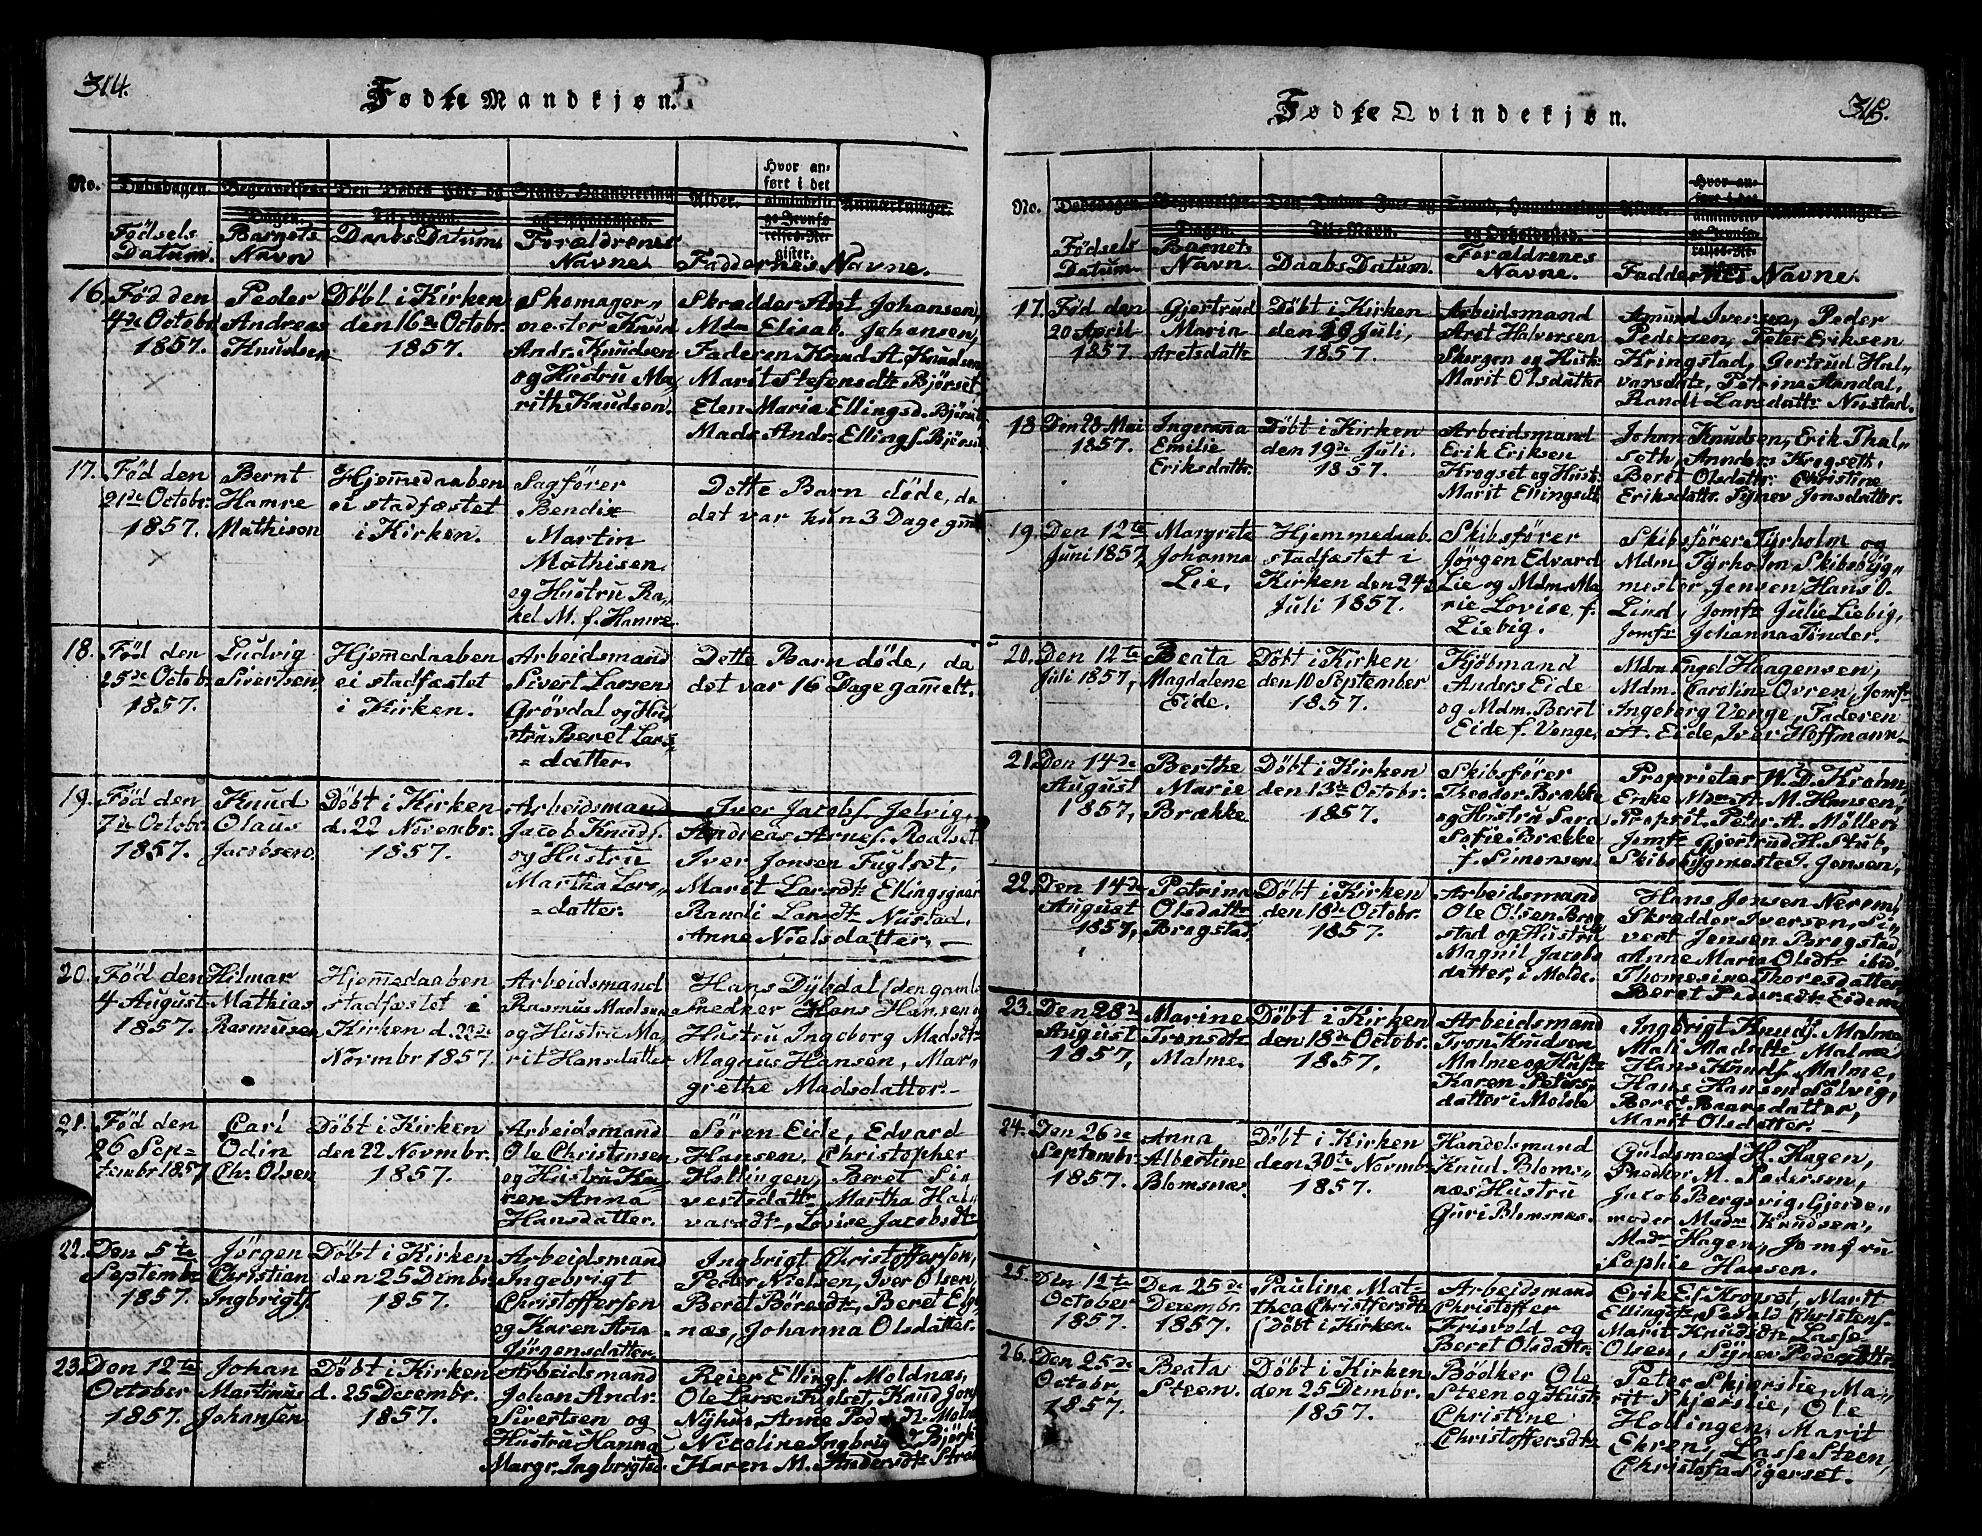 314.
Fødte Mandkjøn.
No.
Dødsdagen.
Begravelses-
Dagen.
Den Dødes For- og
Til-Navn.
Stand, Haandtering
og Opholdssted.
Alder.
Hvor an-
ført i det
almindeli-
ge Jevnfø-
relses-Re-
gister.
Anmærkninger.
Fødsels
Datum.
Barnets
Navn
Daabs Datum.
Forældrenes
Navne.
Faddernes Navne.
16.
Fød den
4de Octobr.
1857.
Peder
Andreas
Knudsen
Døbt i Kirken
den 16de Octobr.
1857.
Skomager-
mester Knud
Andr. Knudsen
og Hustru Ma-
rith Knudsen.
Skrædder Ant. Johansen,
Mdm Elisab. Johansen,
Faderen Knud A. Knudsen
Marit Stefensdtr Bjørset
Elen Maria Ellingsd. Bjørset
Mads Andr. Ellings. Bjørset
17.
Fød den
21de Octobr.
1857.
Bernt
Hamre
Mathisen
Hjemmedaaben
ei stadfæstet
i Kirken.
Sagfører
Bendix
Martin
Mathisen
og Hustru Ra-
kel M. f. Hamre.
Dette Barn døde, da
det var kun 3 Dage gml
18.
Fød den
25de Octobr.
1857.
Ludvig
Sivertsen
Hjemmedaaben
ei stadfæstet
i Kirken.
Arbeidsmand
Sivert Larsen
Grövdal og Hu-
stru Beret Lars-
datter.
Dette Barn døde, da
det var 16 Dage gamelt.
19.
Fød den
7de Octobr.
1857.
Knud
Olaus
Jacobsen.
Døbt i Kirken
d. 22 Novembr.
1857.
Arbeidsmand
Jacob Knuds.
og Hustru
Martha Lars-
datter.
Iver Jacobs. Jelvig,
Andreas Arnes. Roalset
Iver Jonsen Fuglset,
Marit Larsdtr Ellingsgaard
Randi Larsdtr Nustad.
Anne Nielsdatter.
20.
Fød den
4 August
1857.
Hilmar
Mathias
Rasmusen
Hjemmedaaben
stadfæstet i
Kirken d. 22de
Novmbr 1857.
Arbeidsmand
Rasmus Madsen
og Hustru Ma-
rit Hansdatter
Hans Dybdal (den gamle
Snedker Hans Hansen og
Hustru Ingeborg Madsdtr
Magnus Hansen, Mar-
grethe Madsdatter.
21.
Fød den
26 Sep-
tembr 1857
Carl
Odin
Chr. Olsen
Døbt i Kirken
den 22 Novmbr.
1857.
Arbeidsmand
Ole Christensen
og Hustru Ka-
ren Anna
Hansdatter.
Søren Eide, Edvard
Hansen, Christopher
Hollingen, Beret Si-
vertsdatr. Martha Hal-
varsdtr, Lovise Jacobsdtr
22.
Den 5te
Septembr
1857.
Jørgen
Christian
Ingbrigts.
Døbt i Kirken
den 25 Dcmbr.
1857.
Arbeidsmand
Ingebrigt
Christoffersen
og Karen Ana
Jørgensdatter.
Ingbrigt Christoffersen,
Peder Nielsen, Iver Olsen,
Beret Böresdtr, Beret Eg-
næs, Johanna Olsdatter.
23.
Den 12te
October
1857.
Johan
Martinus
Johansen
Døbt i Kirken
d. 25 Decembr.
1857.
Arbeidsmand
Johan Andr.
Sivertsen og
Hustru Hanna
Margr. Ingbrigtsd.
Reier Ellings. Moldnæs,
Ole Larsen Kulset, Knud Jons
Nyhus, Anne Ped
Nicoline Ingbrig
Karen M. Andersdtr
315.
Fødte Qvindekjøn.
No.
Dødsdagen.
Begravelses-
Dagen.
Den Dødes For- og
Til-Navn.
Stand, Haandtering
og Opholdssted.
Alder.
Hvor an-
ført i det
almindeli-
ge Jevnfø-
relses-Re-
gister.
Anmærkninger.
Fødsels
Datum.
Barnets
Navn.
Daabs Datum.
Forældrenes
Navne.
Faddernes Navne.
17.
Fød den
20 April
1857.
Gjertrud
Maria
Aretsdatr
Døbt i Kirken
den 29 Juli,
1857.
Arbeidsmand
Aret Halversen
Skorgen og Hustr.
Marit Olsdatter
Amund Iversen, Peder
Pedersen, Peter Eriksen
Kringstad, Gertrud Hal-
varsdatr, Petrina Handal,
Randi Larsdattr Nustad.
18
Den 28 Mai
1857.
Ingeranna
Emilie
Eriksdattr.
Døbt i Kirken
den 19de Juli.
1857.
Arbeidsmand
Erik Eriksen
Krogset og Hustr.
Marit Ellingsdtr
Johan Knudsen, Erik Thal-
seth, Annders Krogseth,
Beret Olsdattr. Christine
Eriksdattr. Synev Jonsdattr.
19.
Den 12te
Juni 1857,
Margrete
Johanna
Lie.
Hjemmedaab.
stadfæstet i
Kirken den 24de
Juli 1857.
Skibsfører
Jörgen Edvard
Lie og Mdm Ma-
rie Lovise, f.
Liebig.
Skibsfører Tyrholm og
Mdm Tyrholm, Skibsbyg-
mester, Jensen, Hans O.
Lind, Jomfr Julie Liebig,
Jomfr Johanna Tönder.
20.
Den 12te
Juli 1857,
Beata
Magdalene
Eide.
Døbt i Kirken
den 10 September
1857.
Kjøbmand
Anders Eide
og Mdm. Beret
Eide f. Venge,
Mdm Engel Haagensen,
Mdm. Caroline Övren, Jomfr
Ingeborg Venge, Faderen
A. Eide, Iver Hoffmann
21.
Den 14de
August
1857,
Berthe
Marie
Brække
Døbt i Kirken
den 13de Octobr.
1857.
Skibsfører
Theodor Brække
og Hustru Sara
Sofie Brække
f. Simonsen
Proprietær W. D. Krohn,
Enke Mdm A. M. Hansen,
Propst. Peter A. Möller,
Jomfr Gjertrud H. Stub,
Skibsbygmester J. Jensen,
22.
Den 14de
August
1857,
Petrina
Olsdattr
Brogstad,
Døbt i Kirken
den 18de Octobr.
1857.
Arbeidsmand
Ole Olsen Brog
stad og Hustru
Magnil Jacobs
datter, i Molde.
Hans Jensen Nerem,
Skrædder Iversen, Si-
vert Jensen Brogstad
Anne Maria Olsdtr ibid.
Thomesine Thoresdatter,
Beret Pedersdtr Eidem
23.
Den 28de
August
1857,
Marine
Tronsdtr
Malme.
Døbt i Kirken
den 18de Octobr.
1857.
Arbeidsmand
Tron Knudsen
Malme og Hustr
Karen Peters-
datter i Molde
Ingbrigt Knuds. Malme
Mali Madsdtr. Malme
Hans Knuds. Malme,
Hans Hansen Sølvig,
Beret Baarsdatter,
Marit Olsdatter.
24.
Den 26de
Septembr.
1857.
Anna
Albertine
Blomsnæs.
Døbt i Kirken
den 30te Novmbr.
1857.
Handelsmand
Knud Bloms-
næs Hustru
Guri Blomsnæs.
Guldsmed H. Hagen,
Snedker M. Pedersen,
Jacob Bergsvig, Gjorde-
moder Madm Knudsen,
Madm Hagen, Jomfru
Sophie Hansen.
25.
Den 12te
October
1857.
Den 25de
Decembr.
1857.
Pauline Mat-
thea Christfersdtr
(Døbt i Kirken.
Arbeidsmand
Christoffer
Frisvold og
Beret Olsdattr.
Erik Es. Krogset, Marit
Ellingsdtr, Sevald Christens.
Marit Knudsdtr, Lasse
Olsen, Synev Pedersdtter
26.
Den 25de
Octobr,
1857.
Beata
Steen.
Døbt i Kirken
den 25 Dcmbr.
1857.
Bødker Ole
Steen og Hustr
Christine
Christoffersdtr
Peter Skjærslie, Ma-
rit Skjærslie, Ole
Hollingen, Marit
Ehren, Lasse Steen,
Christofa Sigerset.